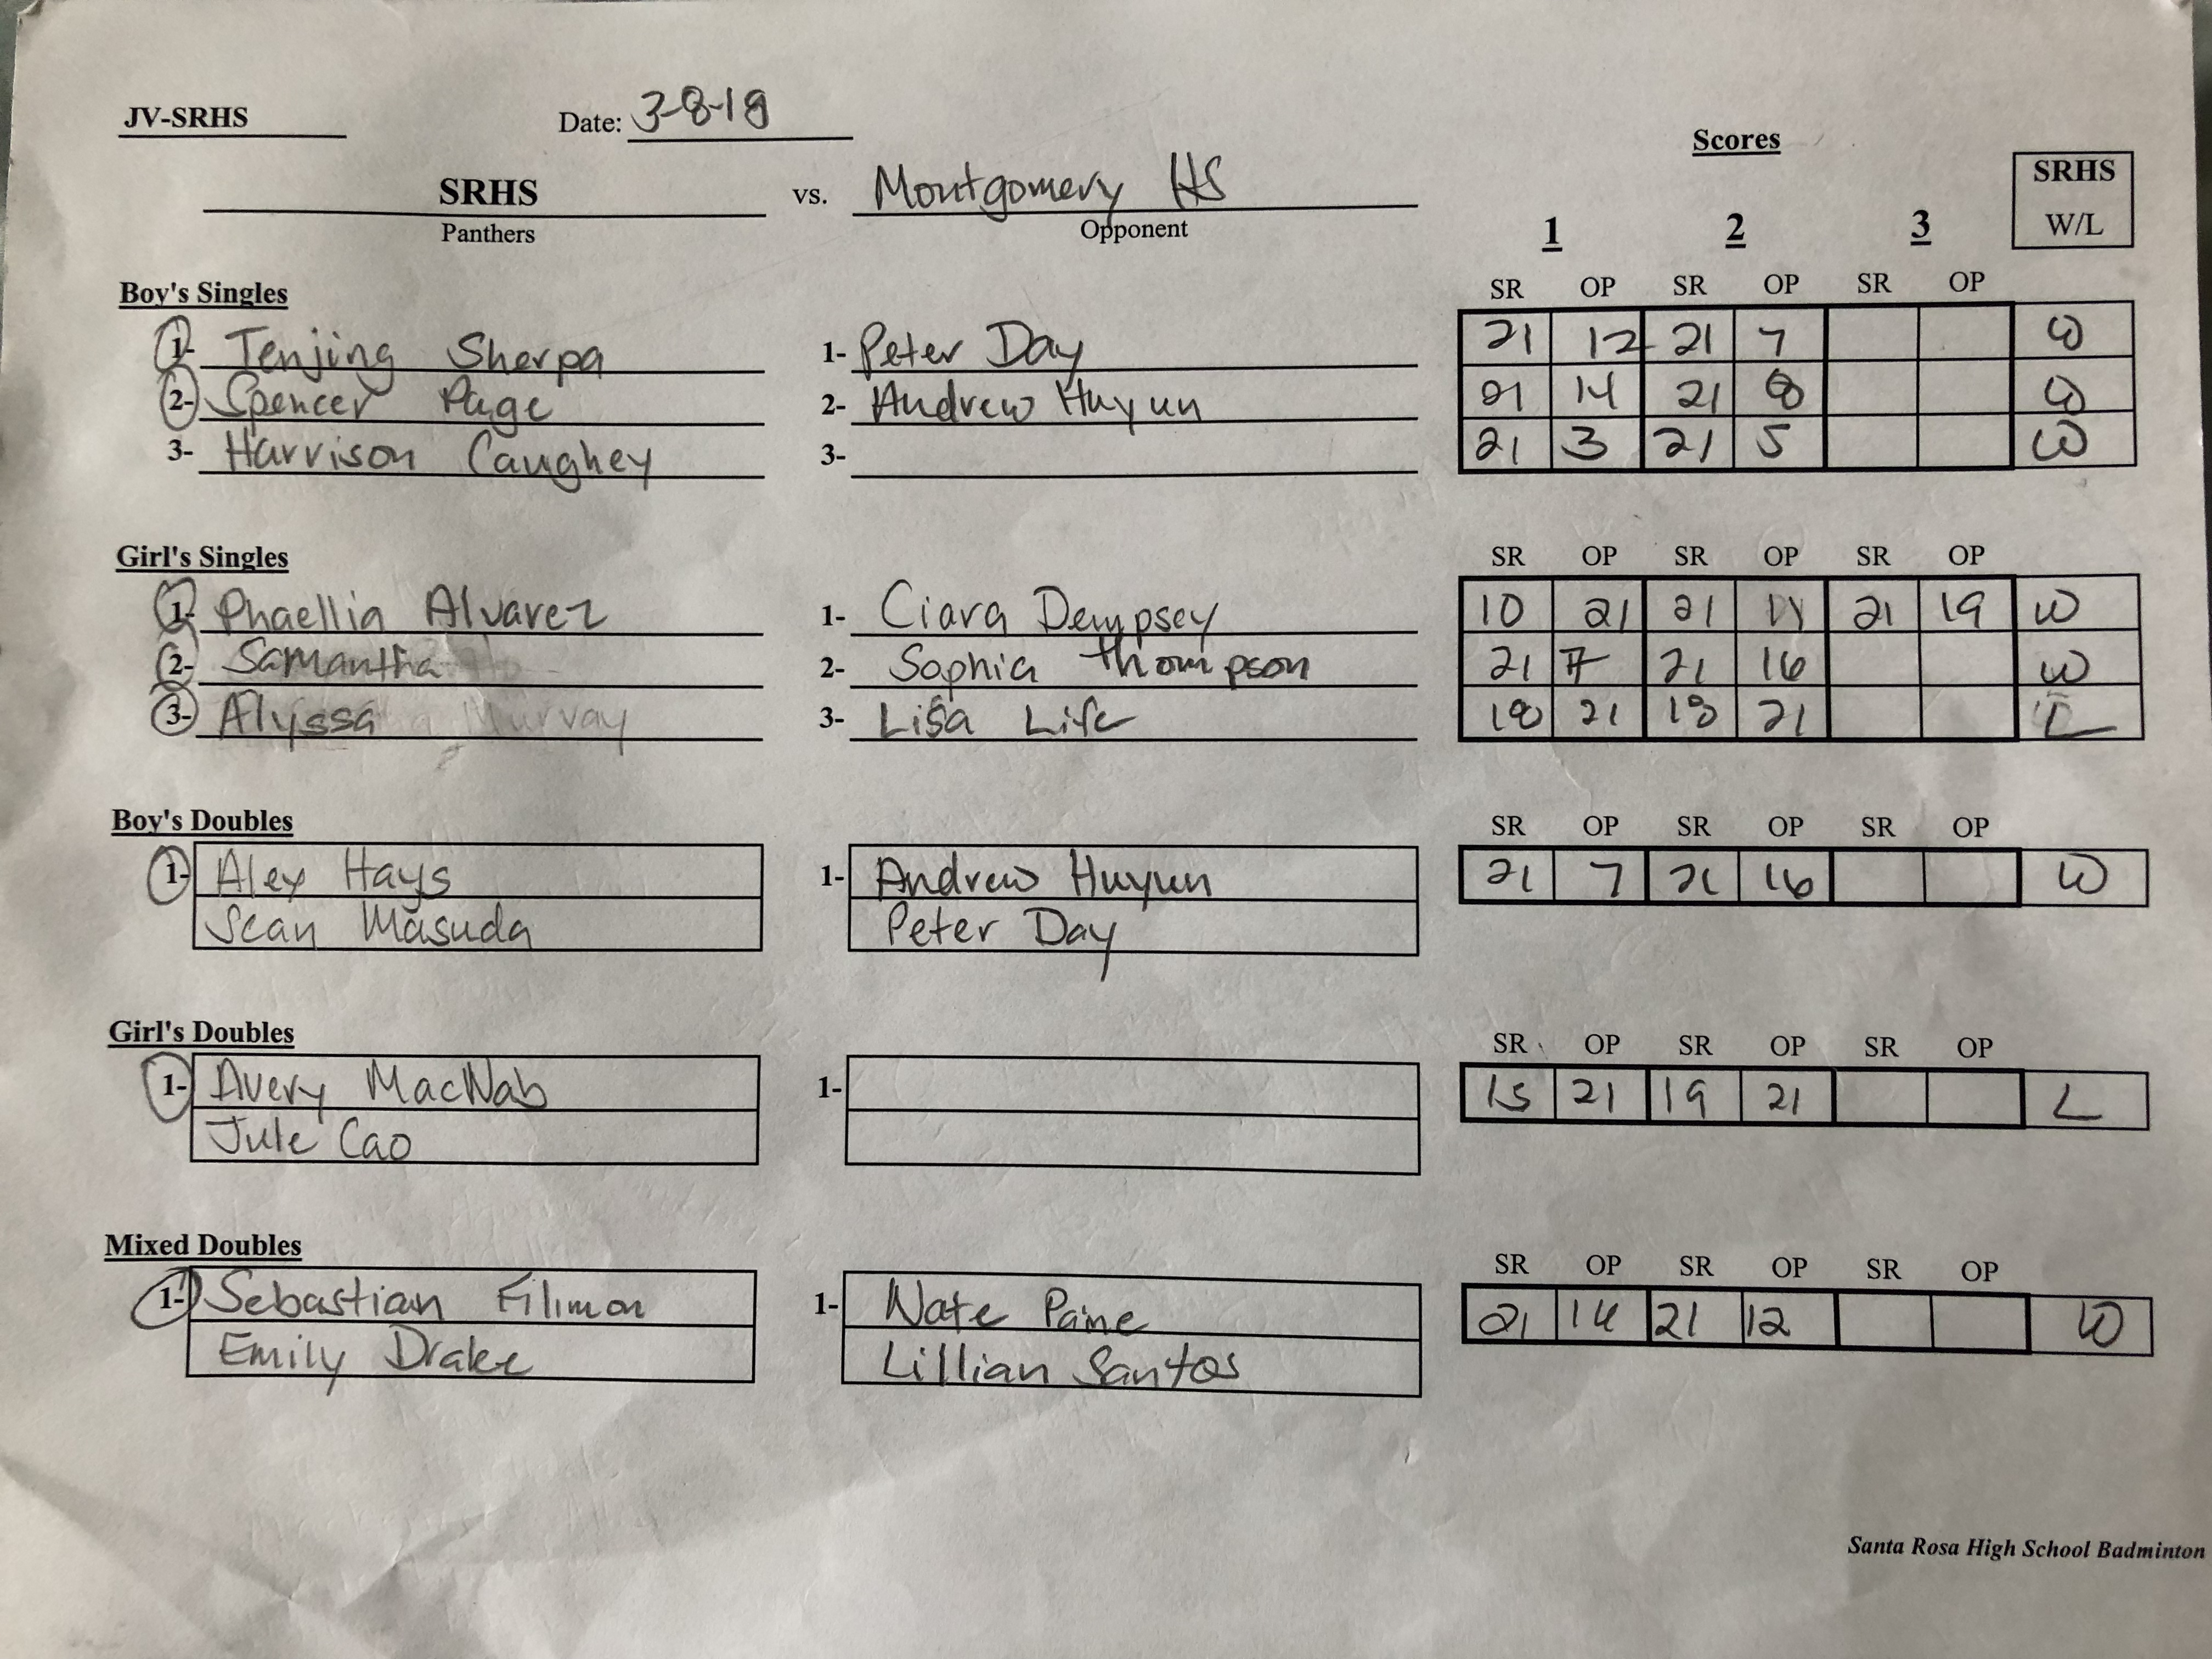 JV-SRHS Date: 3-8-18
Scores
SRHS vs. Montgomery HS
Panthers Opponent
1 2 3
SRHS
W/L
Boy's Singles SR OP SR OP SR OP
1- Tenjing Sherpa 1- Peter Day 21 12 21 7 W
2- Spencer Page 2- Andrew Huyun 21 14 21 8 W
3- Harrison Caughey 3- 21 3 21 5 W
Girl's Singles SR OP SR OP SR OP
1- Phaellia Alvarez 1- Ciara Dempsey 10 21 21 11 21 19 W
2- Samantha 2- Sophia Thompson 21 7 21 16 W
3- Alyssa Murray 3- Lisa 18 21 18 21 L
Boy's Doubles SR OP SR OP SR OP
1- Alex Hays 1- Andrew Huyun 21 7 21 16 W
Sean Masuda Peter Day
Girl's Doubles SR OP SR OP SR OP
1- Avery MacNab 1- 15 21 19 21 L
Jule Cao
Mixed Doubles SR OP SR OP SR OP
1- Sebastian Filimon 1- Nate Paine 21 14 21 12 W
Emily Drake Lillian Santos
Santa Rosa High School Badminton